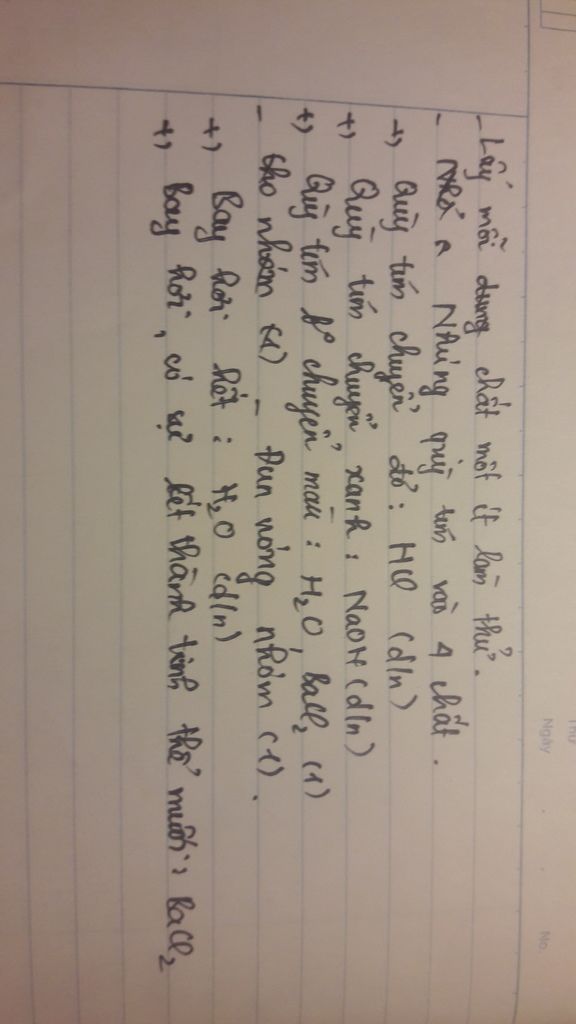 Thứ
Ngày . No.
- Lấy mỗi dung chất một ít làm thử.
- Nhúng quỳ tím vào 4 chất.
+) Quỳ tím chuyển đỏ: HCl (d/n)
+) Quỳ tím chuyển xanh: NaOH (d/n)
+) Quỳ tím ko chuyển màu: H₂O, BaCl₂ (1)
- Cho nhóm (1) - Đun nóng nhóm (1).
+) Bay hơi hết: H₂O (d/n)
+) Bay hơi, có sự kết thành tinh thể muối: BaCl₂